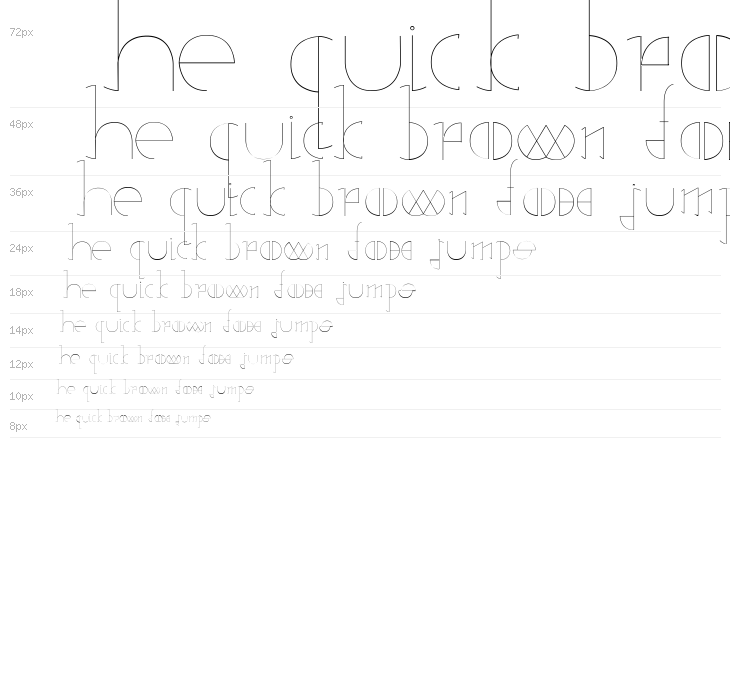 72px he quick bro
48px he quick brown fo
36px he quick brown fox jump
24px he quick brown fox jumps
18px he quick brown fox jumps
14px he quick brown fox jumps
12px he quick brown fox jumps
10px he quick brown fox jumps
8px he quick brown fox jumps